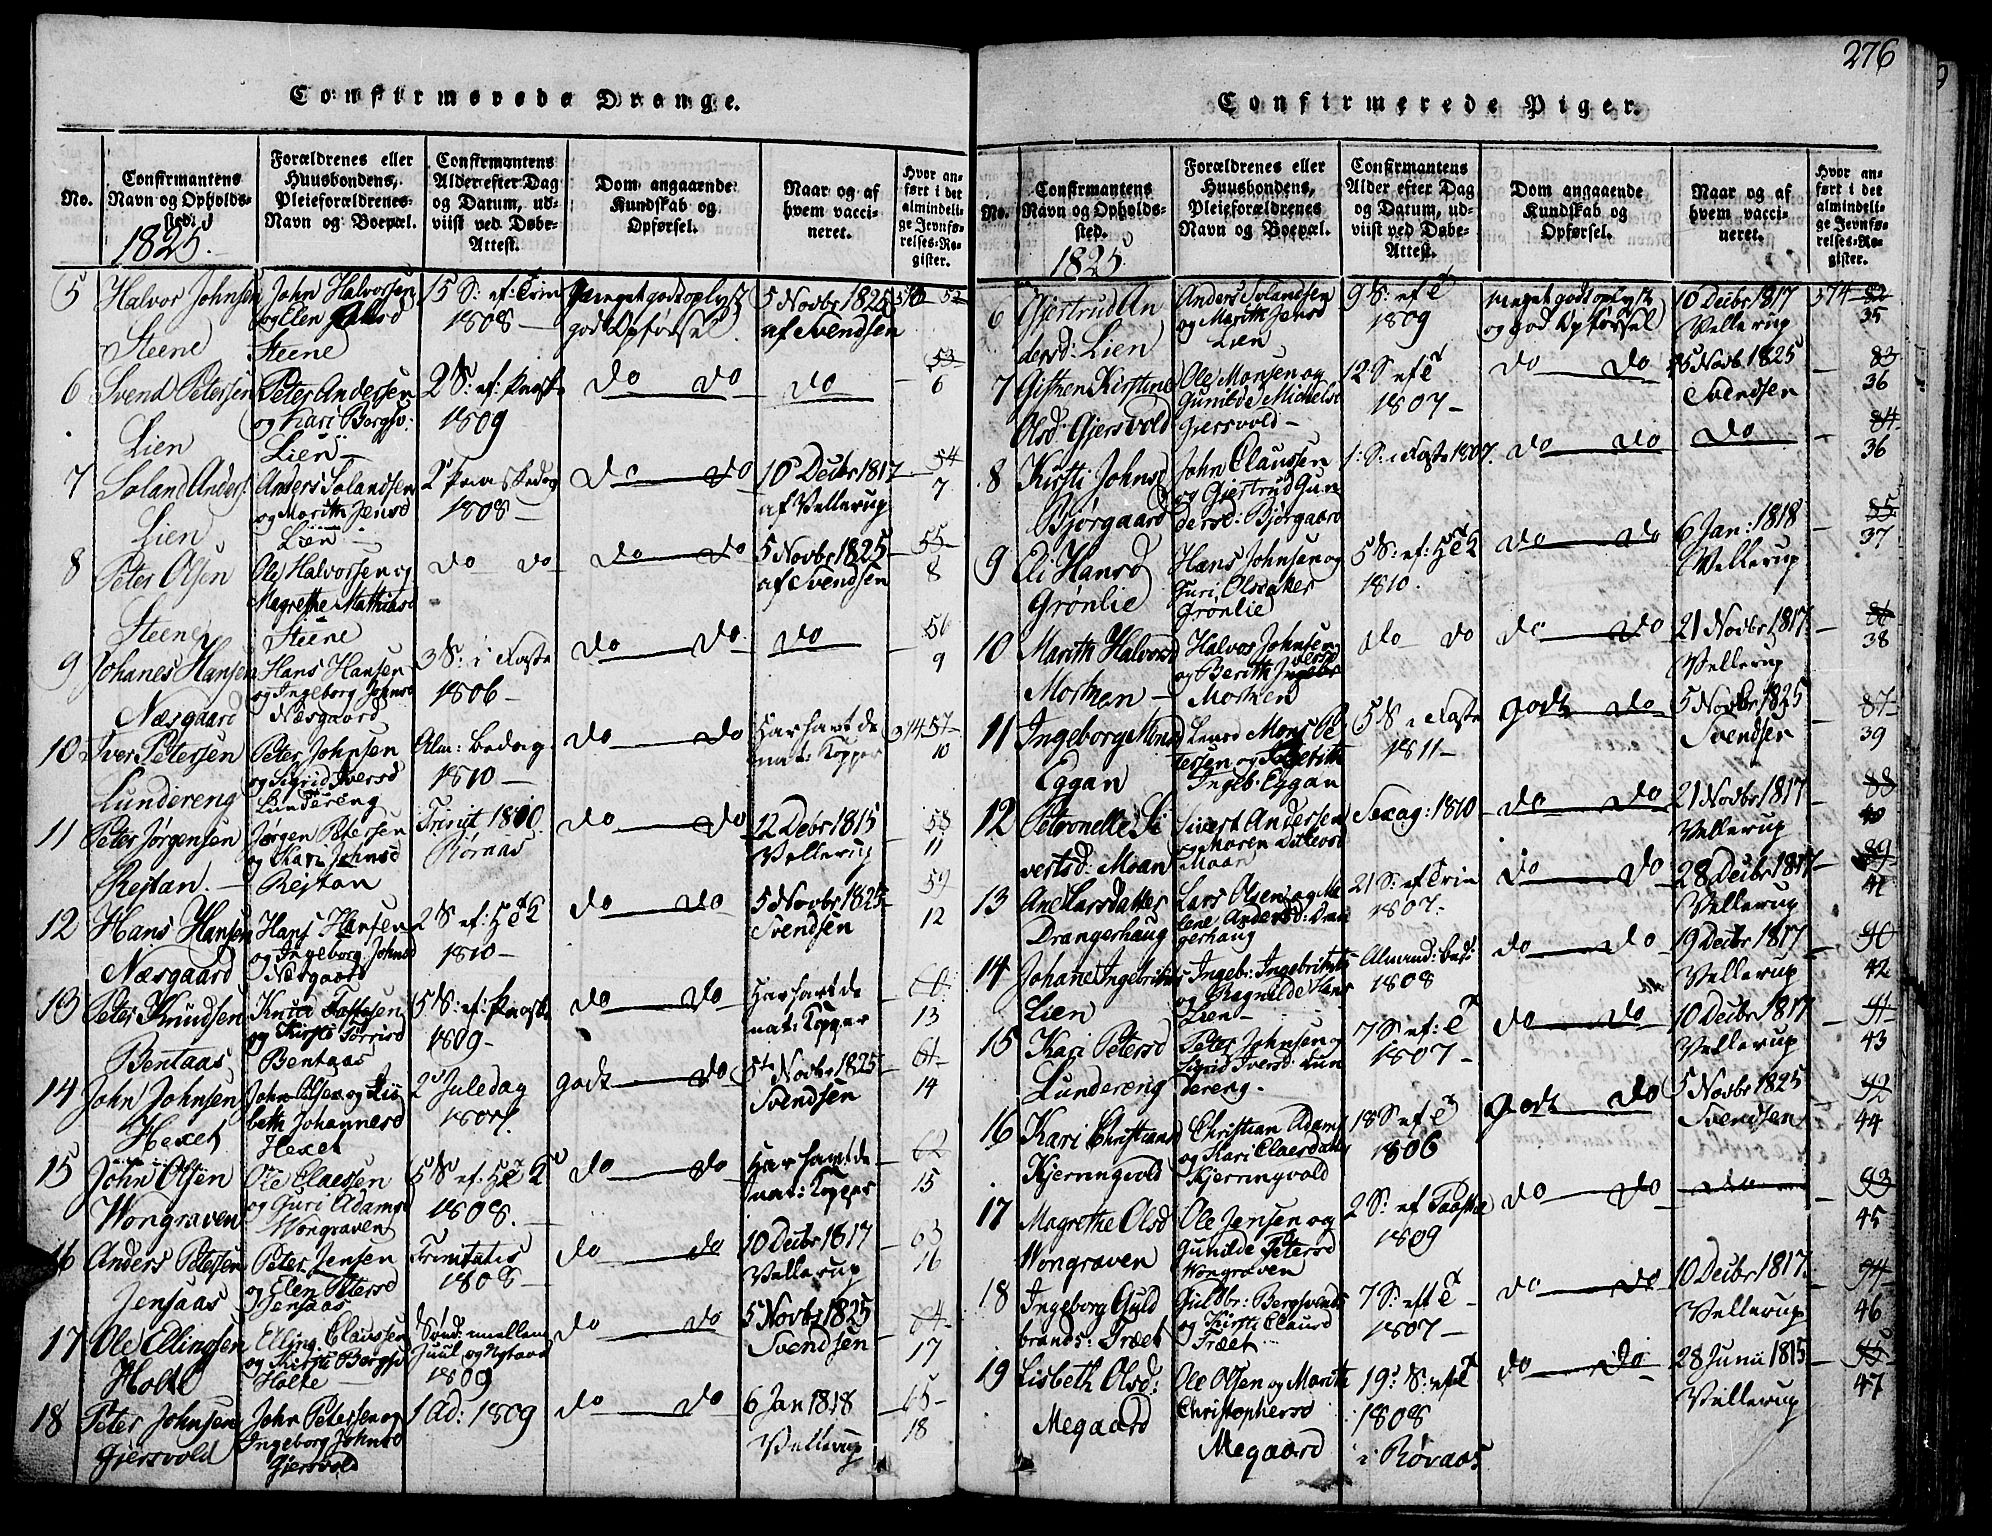 276
Confirmerede Drenge.
No.
Confirmantens
Navn og Opholds-
sted.
1825.
Forældrenes eller
Huusbondens,
Pleieforældrenes
Navn og Boepæl.
Confirmantens
Alder efter Dag
og Datum, ud-
viist ved Døbe-
Attest.
Dom angaaende
Kundskab og
Opførsel.
Naar og af
hvem vacci-
neret.
Hvor an-
ført i det
almindeli-
ge Jevnfø-
relses-Re-
gister.
5
Halvor Johnsen
Steene
John Halvorsen
og Elen
Steene
15 S: ef: Trin
1808 —
meget godt oplyst
god Opførsel
5 Novbr 1825
af Svendsen
52
6
Svend Petersen
Lien
Peter Andersen
og Kari Bergsv:
Lien
2 S: ef: Paask
1809
do do
do
53
6
7
Soland Anders:
Lien
Anders Solandsen
og Marith Jensd
Lien
2 Paaskedag
1808 —
do do
10 Decbr 1817
af Vellerup
54
7
8
Peter Olsen
Steene
Ole Halvorsen og
Magrethe Mathiasd
Steene
do do
do do
5 Novbr 1825
af Svendsen
55
8
9
Johanes Hansen
Næsgaard
Hans Hansen
og Ingeborg Johnsd
Næsgaard
3 S: i Faste
1806 —
do do
do
56
9
10
Iver Petersen
Lundereng
Peter Johnsen
og Sigrid Iversd
Lundereng
Alm: Bedag
1810 —
do do
Har havt de
nat: Kopper
57
10
11
Peter Jørgensen
Rejtan. —
Jørgen Petersen
og Kari Johnsd
Rejtan
Trinit 1810
Rørnas
do do
12 Debr 1815
Vellerup
58
11
12
Hans Hansen
Næsgaard
Hans Hansen
og Ingeborg Johnsd
Næsgaard
2 S ef:
1810 —
do do
5 Novbr 1825
Svendsen
59
12
13
Peter Knudsen
Bentaas
Knud
og Kirsti
Bentaas
5 S: ef: Paaske
1809 —
do do
Har havt de
nat: Kopper
60
13
14
John Johnsen
Hexet
John Olsen og Lis
beth Johannesd
Hexet
2 Juledag
godt do
5 Novbr 1825
Svendsen
61
14
15
John Olsen
Wongraven
Ole Claessen
og Guri Adams
Wongraven
5 S ef:
1808. —
do do
Har havt de
nat: Kopper
62
15
16
Anders Petersen
Jensaas
Peter Jensen
og Elen Petersd
Jensaas
Trinitatis
1808 —
do do
10 Decbr 1817
Vellerup
63
16
17
Ole Ellingsen
Holte
Elling Claussen
og Kirsti Bergsv
Holte
Sønd: mellem
Juul og Nytaar
1809
do do
5 Novbr 1825
Svendsen
64
17
18
Peter Johnsen
Gjersvold
John Petersen og
Ingeborg Johnsd
Gjersvold
1 Ad: 1809
do do
6 Jan 1818
Vellerup
65
18
Confirmerede Piger.
No.
Confirmantens
Navn og Opholds-
sted.
1825.
Forældrenes eller
Huusbondens,
Pleieforældrenes
Navn og Boepæl.
Confirmantens
Alder efter Dag
og Datum, ud-
viist ved Døbe-
Attest.
Dom angaaende
Kundskab og
Opførsel.
Naar og af
hvem vacci-
neret.
Hvor an-
ført i det
almindeli-
ge Jevnfø-
relses-Re-
gister.
6
Gjertrud An
dersd: Lien
Anders Solandsen
og Marith Jensd
Lien
9 S: ef
1809
meget godt oplyst
og god Opførsel
10 Decbr 1817
Vellerup
374
82
35
7
Kirstine
Olsd: Gjersvold
Ole Monsen og
Gunild Michelsd
Gjersvold —
12 S ef
1807 —
do do
5 Novb 1825
Svendsen
83
36
8
Kirsti Johnsd
Bjørgaard
John Claussen
og Gjertrud Gun
dersd: Bjørgaard
1: S: i Faste 1807.
do do
do
84
36
9
Eli Hansd
Grønlie
Hans Johnsen og
Guri
Grønlie
5 S: ef:
1810.
do do
6 Jan: 1818
Vellerup
85
37
10
Marith Halvorsd
Morken —
Halvor Johnsen
og Berith
Morken
do do
do do
21 Novbr 1817
Vellerup
86
38
11
Ingeborg Monsd
Eggan
Mons Pe
tersen og Berith
Ingeb: Eggan
5 S i Faste
1811 —
godt do
5 Novbr 1825
Svendsen
87
39
12
Petronelle Si
vertsd: Moan
Sivert Andersen
og Maren
Moan
Sexag: 1810
do do
21 Novbr 1817
Vellerup
88
40
13
Ane Larsdatter
Drangerhaug
Lars Olsen og
lene Andersd: Dran
gerhaug
21 S: ef Trin
1807.
do do
28 Decbr 1817
Vellerup
89
41
14
Johane
Lien
Ingebr:
og Ragnilde
Lien —
Almind: Bed:
1808
do do
19 Decbr 1817
Vellerup
90
42
15
Kari Petersd
Lundereng
Peter Johnsen og
Sigrid Iversd: Lun
dereng. —
7 S: ef:
1807 —
do do
10 Decbr 1817
Vellerup
91
43
16
Kari Christiansd
Kjerringvold
Christian Adams
og Kari Claesdatter
Kjerringvold
18 S: ef
1806
godt do
5 Novbr 1825
Svendsen
92
44
17
Magrethe Olsd
Wongraven
Ole Jensen og
Gunilde Petersd
Wongraven
2 S: ef Paaske
1809
do do
do
93
45
18
Ingeborg Guld
brands: Træet
Guldbr: Bergsvends
og Kirsti Clausd
Træet
7 S: eft
1807 —
do do
10 Decbr 1817
Vellerup
94
46
19
Lisbeth Olsd:
Megaard
Ole Olsen og Marith
Christophersd
Megaard
19 S: ef
1808
i Røraas
do do
28 Junii 1815
Vellerup
95
47